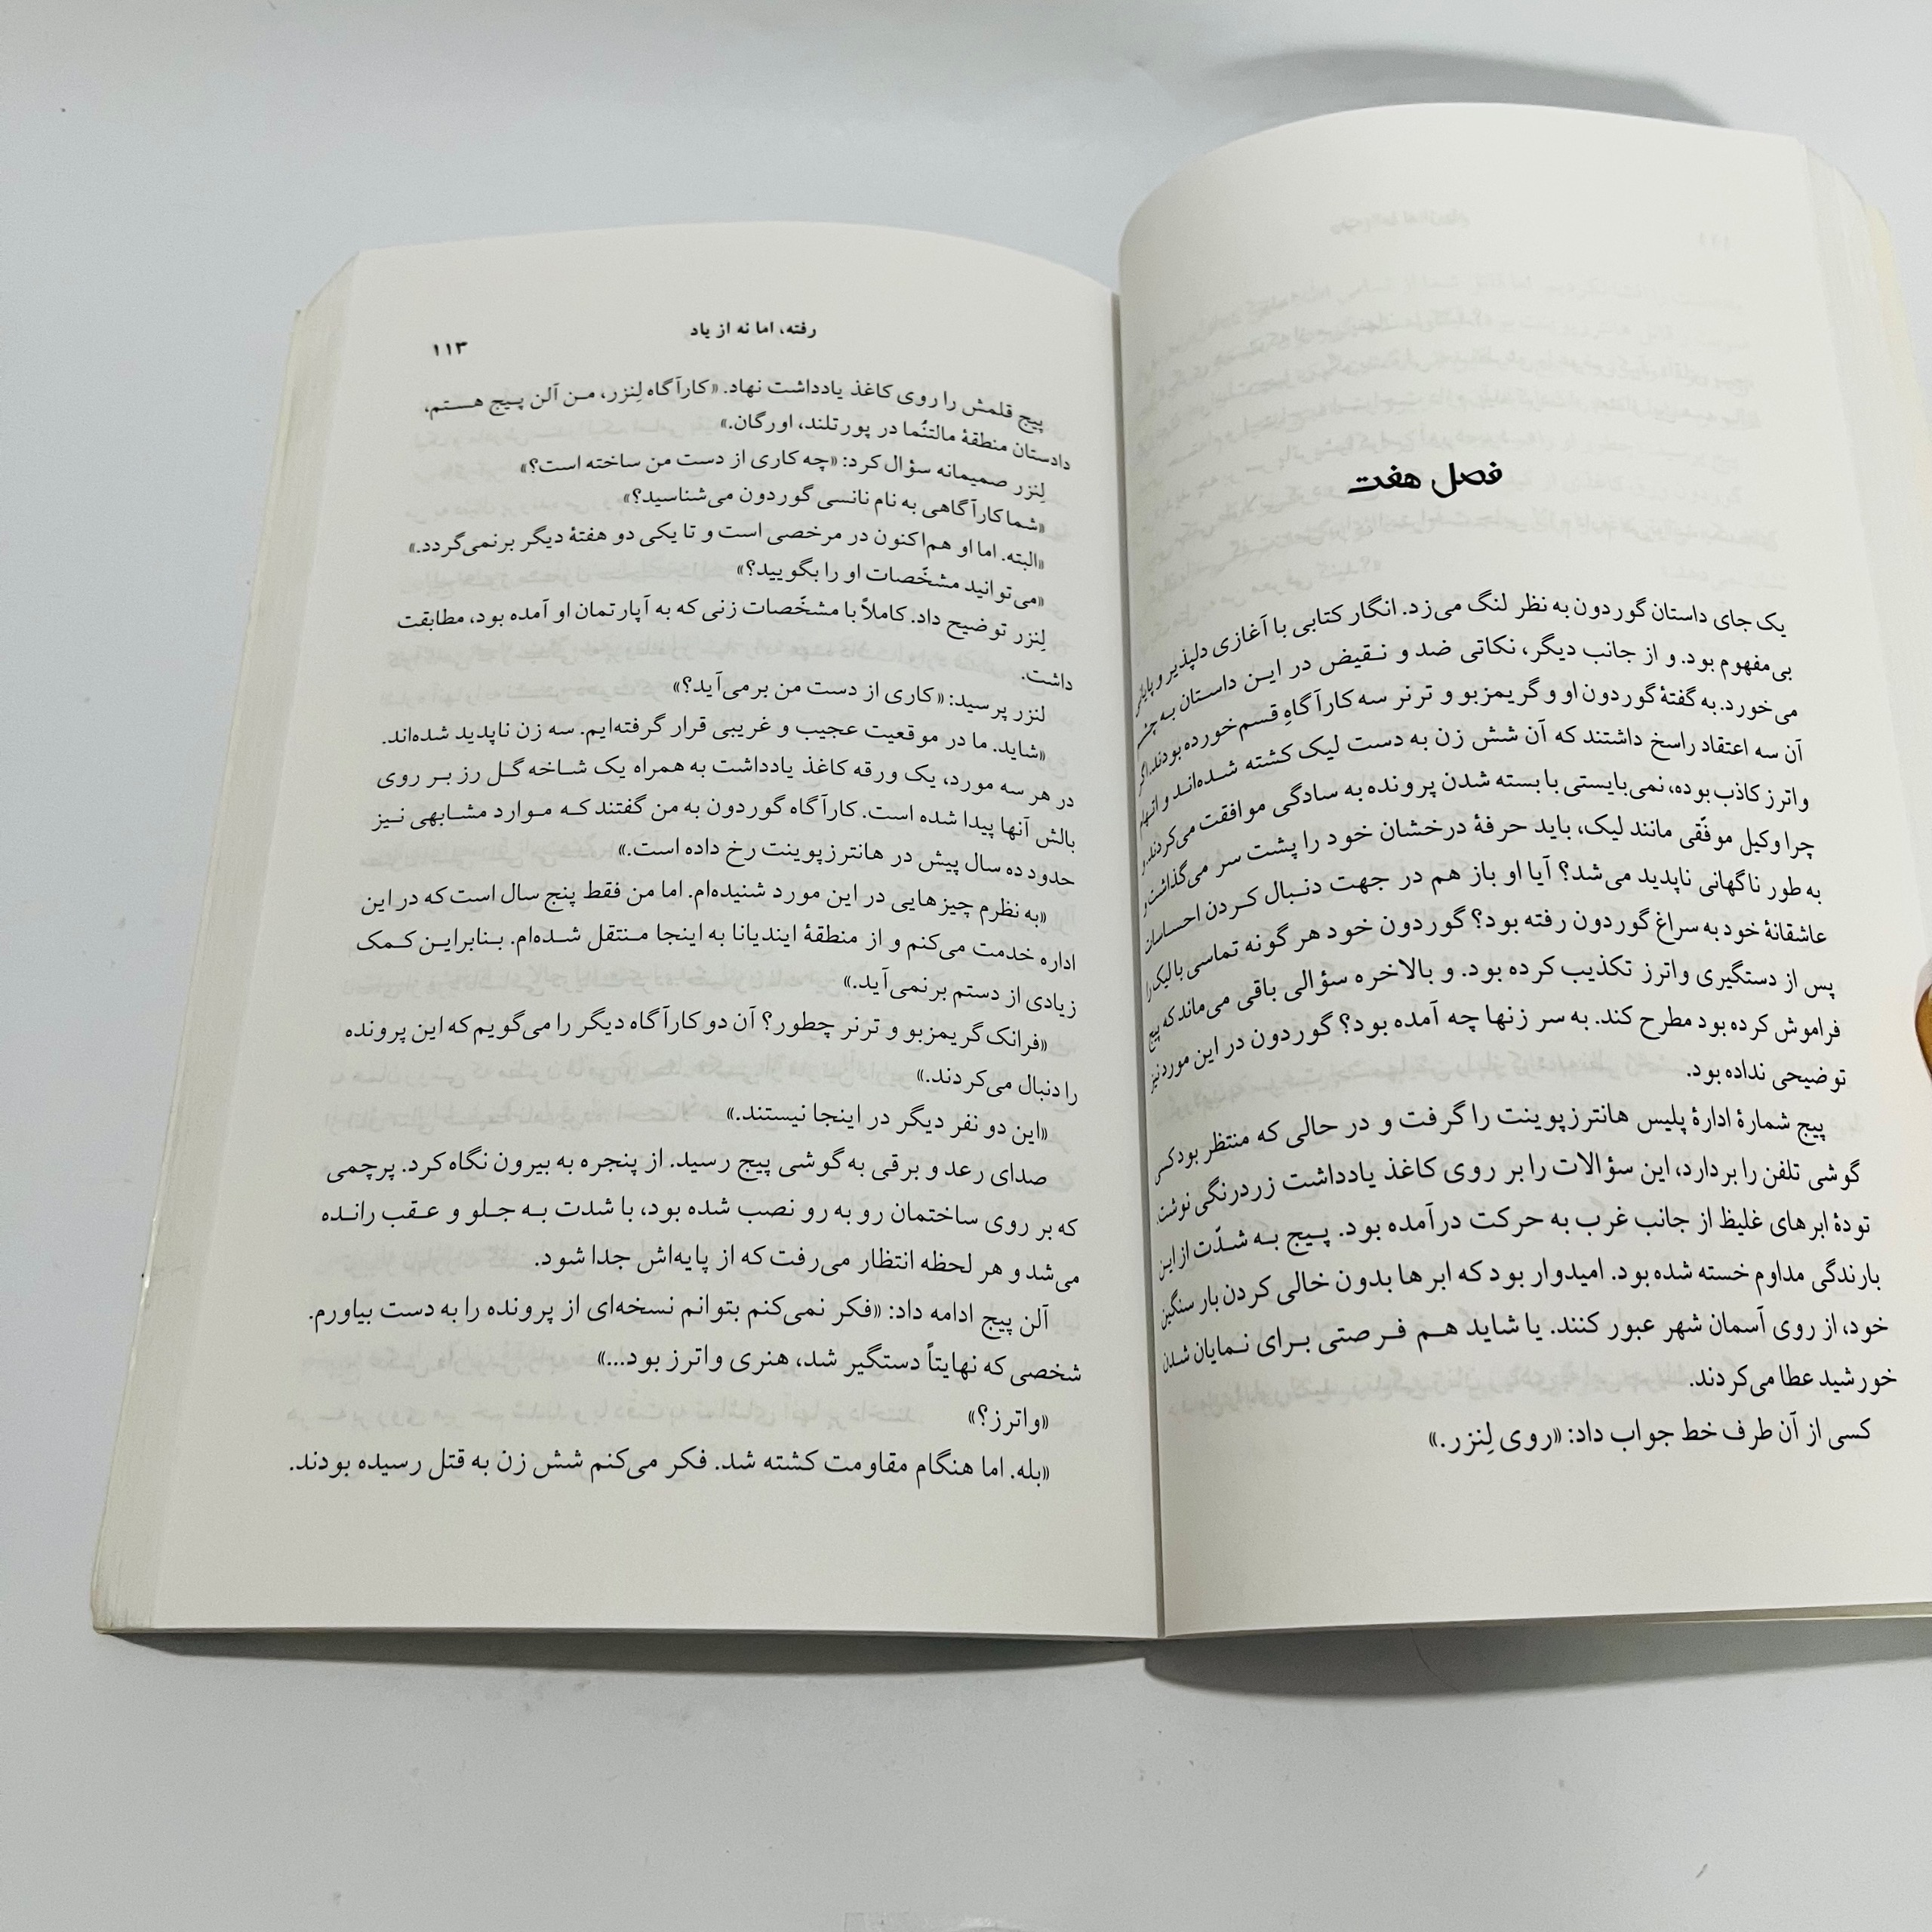 فصل هفت
یک جای داستان گوردون به نظر لنگ می‌زد. انگار کتابی با آغازی دلپذیر و پایانی
بی‌مفهوم بود. و از جانب دیگر، نکاتی ضد و نقیض در این داستان به چشم
می‌خورد. به گفتهٔ گوردون او و گریمزبو و ترنر سه کارآگاهِ قسم‌خورده بودند. اگر
آن سه اعتقاد راسخ داشتند که آن شش زن به دست لیک کشته شده‌اند و اتهام
واترز کاذب بوده، نمی‌بایستی با بسته شدن پرونده به سادگی موافقت می‌کردند. و
چرا وکیل موفّقی مانند لیک، باید حرفهٔ درخشان خود را پشت سر می‌گذاشت و
به طور ناگهانی ناپدید می‌شد؟ آیا او باز هم در جهت دنبال کردن احساسات
عاشقانهٔ خود به سراغ گوردون رفته بود؟ گوردون خود هر گونه تماسی با لیک را
پس از دستگیری واترز تکذیب کرده بود. و بالاخره سؤالی باقی می‌ماند که پیج
فراموش کرده بود مطرح کند. به سر زنها چه آمده بود؟ گوردون در این مورد نیز
توضیحی نداده بود.
پیج شمارهٔ ادارهٔ پلیس هانترزپوینت را گرفت و در حالی که منتظر بود کسی
گوشی تلفن را بردارد، این سؤالات را بر روی کاغذ یادداشت زردرنگی نوشت.
تودهٔ ابرهای غلیظ از جانب غرب به حرکت درآمده بود. پیج به شدّت از این
بارندگی مداوم خسته شده بود. امیدوار بود که ابرها بدون خالی کردن بار سنگین
خود، از روی آسمان شهر عبور کنند. یا شاید هم فرصتی برای نمایان شدن
خورشید عطا می‌کردند.
کسی از آن طرف خط جواب داد: «روی لِنزر.»
رفته، اما نه از یاد
۱۱۳
پیج قلمش را روی کاغذ یادداشت نهاد. «کارآگاه لِنزر، من آلن پیج هستم،
دادستان منطقهٔ مالتنُما در پورتلند، اورگان.»
لِنزر صمیمانه سؤال کرد: «چه کاری از دست من ساخته است؟»
«شما کارآگاهی به نام نانسی گوردون می‌شناسید؟»
«البته. اما او هم‌اکنون در مرخصی است و تا یکی دو هفتهٔ دیگر برنمی‌گردد.»
«می‌توانید مشخّصات او را بگویید؟»
لِنزر توضیح داد. کاملاً با مشخّصات زنی که به آپارتمان او آمده بود، مطابقت
داشت.
لنزر پرسید: «کاری از دست من برمی‌آید؟»
«شاید. ما در موقعیت عجیب و غریبی قرار گرفته‌ایم. سه زن ناپدید شده‌اند.
در هر سه مورد، یک ورقه کاغذ یادداشت به همراه یک شاخه گل رز بر روی
بالش آنها پیدا شده است. کارآگاه گوردون به من گفتند که موارد مشابهی نیز
حدود ده سال پیش در هانترزپوینت رخ داده است.»
«به نظرم چیزهایی در این مورد شنیده‌ام. اما من فقط پنج سال است که در این
اداره خدمت می‌کنم و از منطقهٔ ایندیانا به اینجا منتقل شده‌ام. بنابراین کمک
زیادی از دستم برنمی‌آید.»
«فرانک گریمزبو و ترنر چطور؟ آن دو کارآگاه دیگر را می‌گویم که این پرونده
را دنبال می‌کردند.»
«این دو نفر دیگر در اینجا نیستند.»
صدای رعد و برقی به گوشی پیج رسید. از پنجره به بیرون نگاه کرد. پرچمی
که بر روی ساختمان روبه رو نصب شده بود، با شدت به جلو و عقب رانده
می‌شد و هر لحظه انتظار می‌رفت که از پایه‌اش جدا شود.
آلن پیج ادامه داد: «فکر نمی‌کنم بتوانم نسخه‌ای از پرونده را به دست بیاورم.
شخصی که نهایتاً دستگیر شد، هنری واترز بود...»
«واترز؟»
«بله. اما هنگام مقاومت کشته شد. فکر می‌کنم شش زن به قتل رسیده بودند.